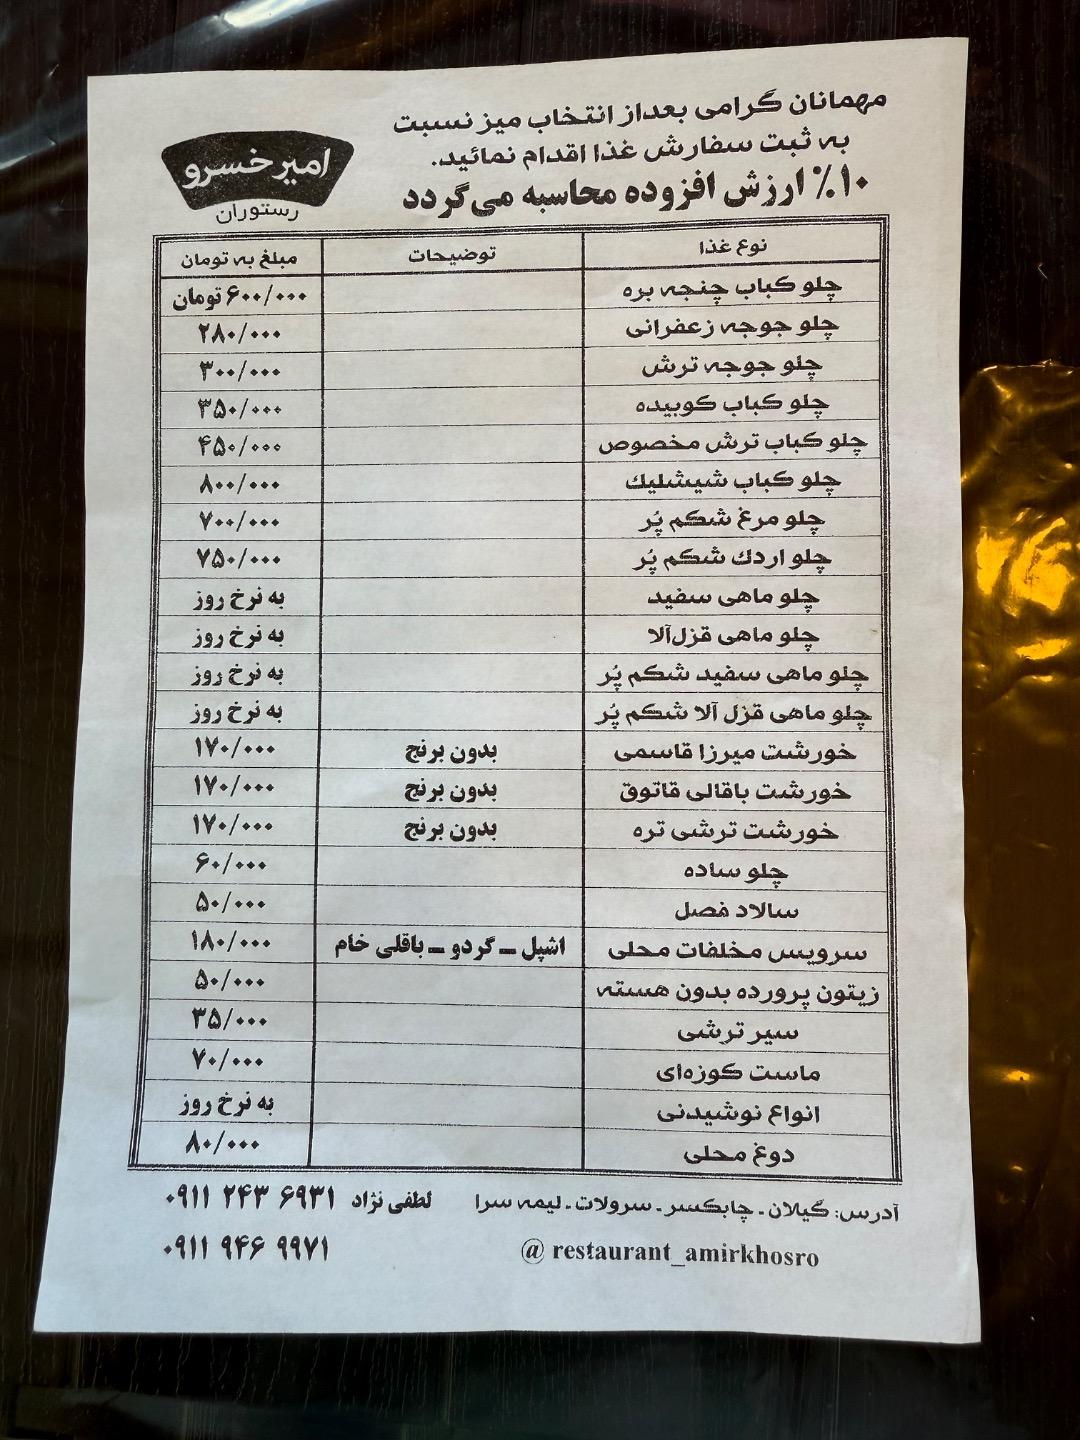 مهمانان گرامی بعداز انتخاب میز نسبت
به ثبت سفارش غذا اقدام نمائید.
۱۰٪ ارزش افزوده محاسبه می‌گردد
امیر خسرو
رستوران
نوع غذا توضیحات مبلغ به تومان
چلو کباب چنجه بره ۶۰۰/۰۰۰ تومان
چلو جوجه زعفرانی ۲۸۰/۰۰۰
چلو جوجه ترش ۳۰۰/۰۰۰
چلو کباب کوبیده ۳۵۰/۰۰۰
چلو کباب ترش مخصوص ۴۵۰/۰۰۰
چلو کباب شیشلیك ۸۰۰/۰۰۰
چلو مرغ شکم پُر ۷۰۰/۰۰۰
چلو اردك شکم پُر ۷۵۰/۰۰۰
چلو ماهی سفید به نرخ روز
چلو ماهی قزل‌آلا به نرخ روز
چلو ماهی سفید شکم پُر به نرخ روز
چلو ماهی قزل آلا شکم پُر به نرخ روز
خورشت میرزا قاسمی بدون برنج ۱۷۰/۰۰۰
خورشت باقالی قاتوق بدون برنج ۱۷۰/۰۰۰
خورشت ترشی تره بدون برنج ۱۷۰/۰۰۰
چلو ساده ۶۰/۰۰۰
سالاد فصل ۵۰/۰۰۰
سرویس مخلفات محلی اشپل ـ گردو ـ باقلی خام ۱۸۰/۰۰۰
زیتون پرورده بدون هسته ۵۰/۰۰۰
سیر ترشی ۳۵/۰۰۰
ماست کوزه‌ای ۷۰/۰۰۰
انواع نوشیدنی به نرخ روز
دوغ محلی ۸۰/۰۰۰
آدرس: گیلان ـ چابکسر ـ سرولات ـ لیمه سرا لطفی نژاد ۰۹۱۱ ۲۴۳ ۶۹۳۱
@ restaurant_amirkhosro ۰۹۱۱ ۹۴۶ ۹۹۷۱